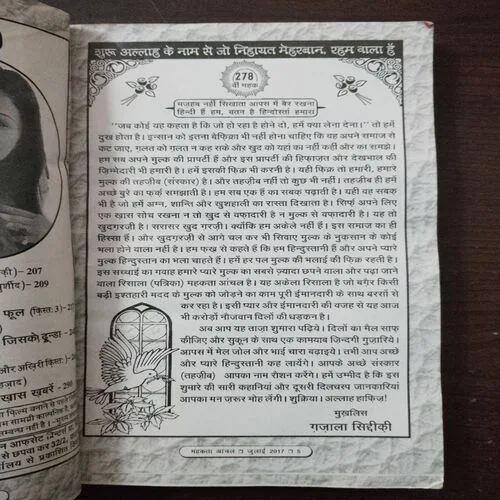 शुरू अल्लाह के नाम से जो निहायत मेहरबान, रहम वाला है
278
वीं महक
मज़हब नहीं सिखाता आपस में बैर रखना
हिन्दी हैं हम, वतन है हिन्दोस्तां हमारा
"जब कोई यह कहता है कि जो हो रहा है होने दो, हमें क्या लेना देना।" तो हमें
दुख होता है। इन्सान को इतना बेफ़िक्रा भी नहीं होना चाहिए कि यह अपने समाज से
कट जाए, ग़लत को ग़लत न कह सके और खुद को यहां का नहीं कहीं और का समझे।
हम सब अपने मुल्क की प्रापर्टी हैं और इस प्रापर्टी की हिफ़ाज़त और देखभाल की
ज़िम्मेदारी भी हमारी है। हमें इसकी फ़िक्र भी करनी है। यही फ़िक्र तो हमारी, हमारे
मुल्क की तहज़ीब (संस्कार) है। और तहज़ीब नहीं तो कुछ भी नहीं। तहज़ीब ही हमें
अच्छे बुरे का फ़र्क़ समझाती है। हम सब एक हैं का सबक़ पढ़ाती है। यही वह सबक़
भी है जो हमें अम्न, शान्ति और खुशहाली का रास्ता दिखाता है। सिर्फ़ अपने लिए
एक ख़ास सोच रखना न तो खुद से वफ़ादारी है न मुल्क से वफ़ादारी है। यह तो
खुदगरज़ी है। सरासर खुद गरज़ी। क्योंकि हम अकेले नहीं हैं। इस समाज का ही
हिस्सा हैं। और खुदगरज़ी से आगे चल कर भी सिवाए मुल्क के नुक़सान के कोई
भला होने वाला नहीं है। हम फख्र से कहते हैं कि हम हिन्दुस्तानी हैं और अपने प्यारे
मुल्क हिन्दुस्तान का भला चाहते हैं। हमें हर पल मुल्क की भलाई की फ़िक्र रहती है।
इस सच्चाई का गवाह हमारे प्यारे मुल्क का सबसे ज़्यादा छपने वाला और पढ़ा जाने
वाला रिसाला (पत्रिका) महकता आंचल है। यह अकेला रिसाला है जो बग़ैर किसी
बड़ी इश्तहारी मदद के मुल्क को जोड़ने का काम पूरी ईमानदारी के साथ बरसों से
कर रहा है। इसी प्यार और ईमानदारी की वजह से यह आज
भी करोड़ों नौजवान दिलों की धड़कन है।
अब आप यह ताज़ा शुमारा पढ़िये। दिलों का मैल साफ़
कीजिए और सुकून के साथ एक कामयाब ज़िन्दगी गुज़ारिये।
आपस में मेल जोल और भाई चारा बढ़ाइये। तभी आप अच्छे
और प्यारे हिन्दुस्तानी कह लायेंगे। आपके अच्छे संस्कार
(तहज़ीब) आपका नाम रौशन करेंगे। हमें उम्मीद है कि इस
शुमारे की सारी कहानियां और दूसरी दिलचस्प जानकारियां
आपका मन ज़रूर मोह लेंगी। शुक्रिया। अल्लाह हाफिज़!
मुख़लिस
गजाला सिद्दीक़ी
महकता आंचल □ जुलाई 2017 □ 5
की)– 207
र्शीद)– 209
फूल (क़िस्त: 3)–
जिसको ढून्डा–
और आख़िरी क़िस्त
हज़ाद)
ख़ास ख़बरें - 290